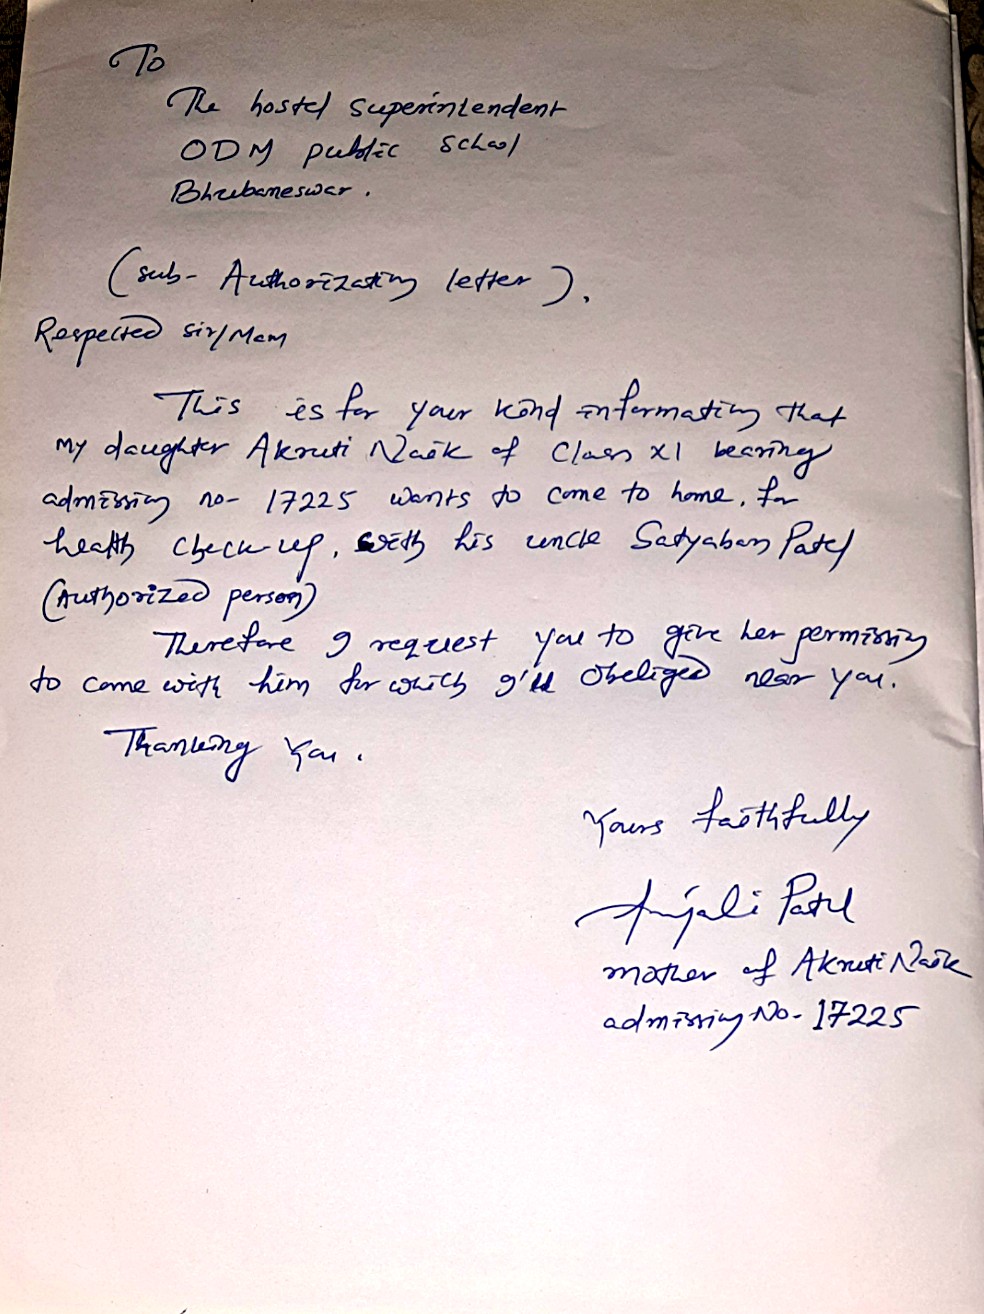 To
The hostel superintendent
ODM public school
Bhubaneswar.
(sub- Authorization letter).
Respected sir/Mam
This is for your kind information that
my daughter Akruti Naik of Class XI bearing
admission no- 17225 wants to come to home, for
health check-up, with his uncle Satyaban Patel
(Authorized person)
Therefore I request you to give her permission
to come with him for which I'll obeliged near you.
Thanking You.
Yours faithfully
Anjali Patel
mother of Akruti Naik
admission No- 17225